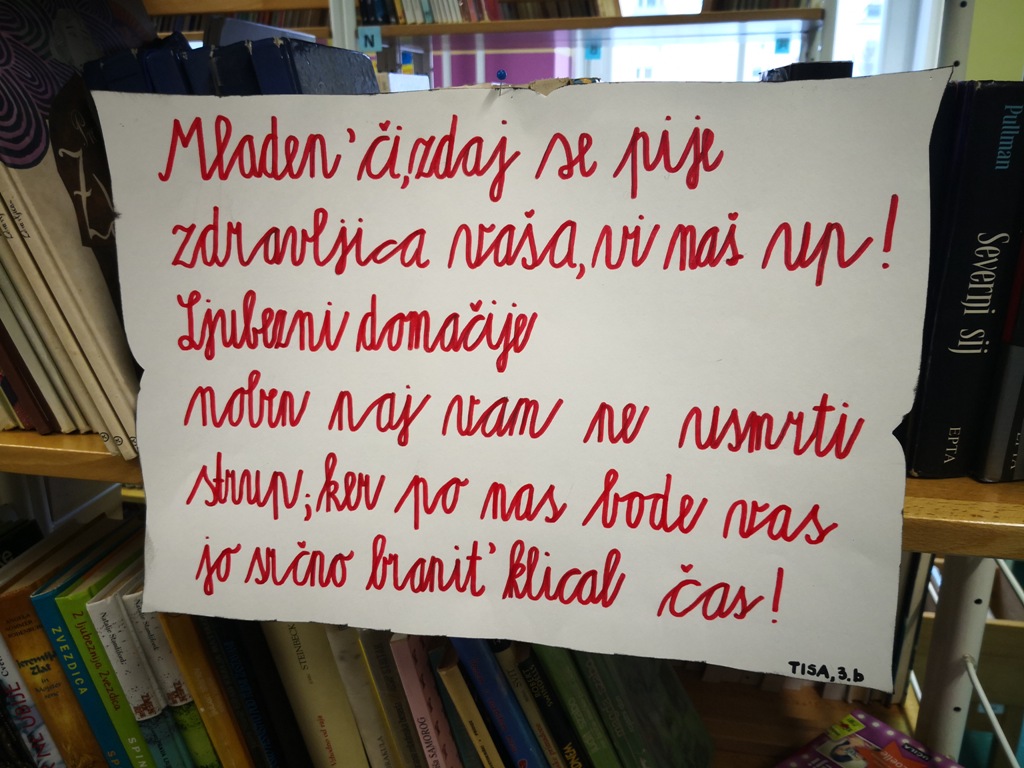 N
Mladen'či, zdaj se pije
zdravljica vaša, vi naš up!
Ljubezni domačije
noben naj vam ne usmrti
strup; ker po nas bode vas
jo srčno branit' klical čas!
TISA, 3.b
Pullman
Severni sij
EPTA
EPTA
ZVEZDICA
Z ljubeznijo Zvezdica
STEINBECK
SAMOROG